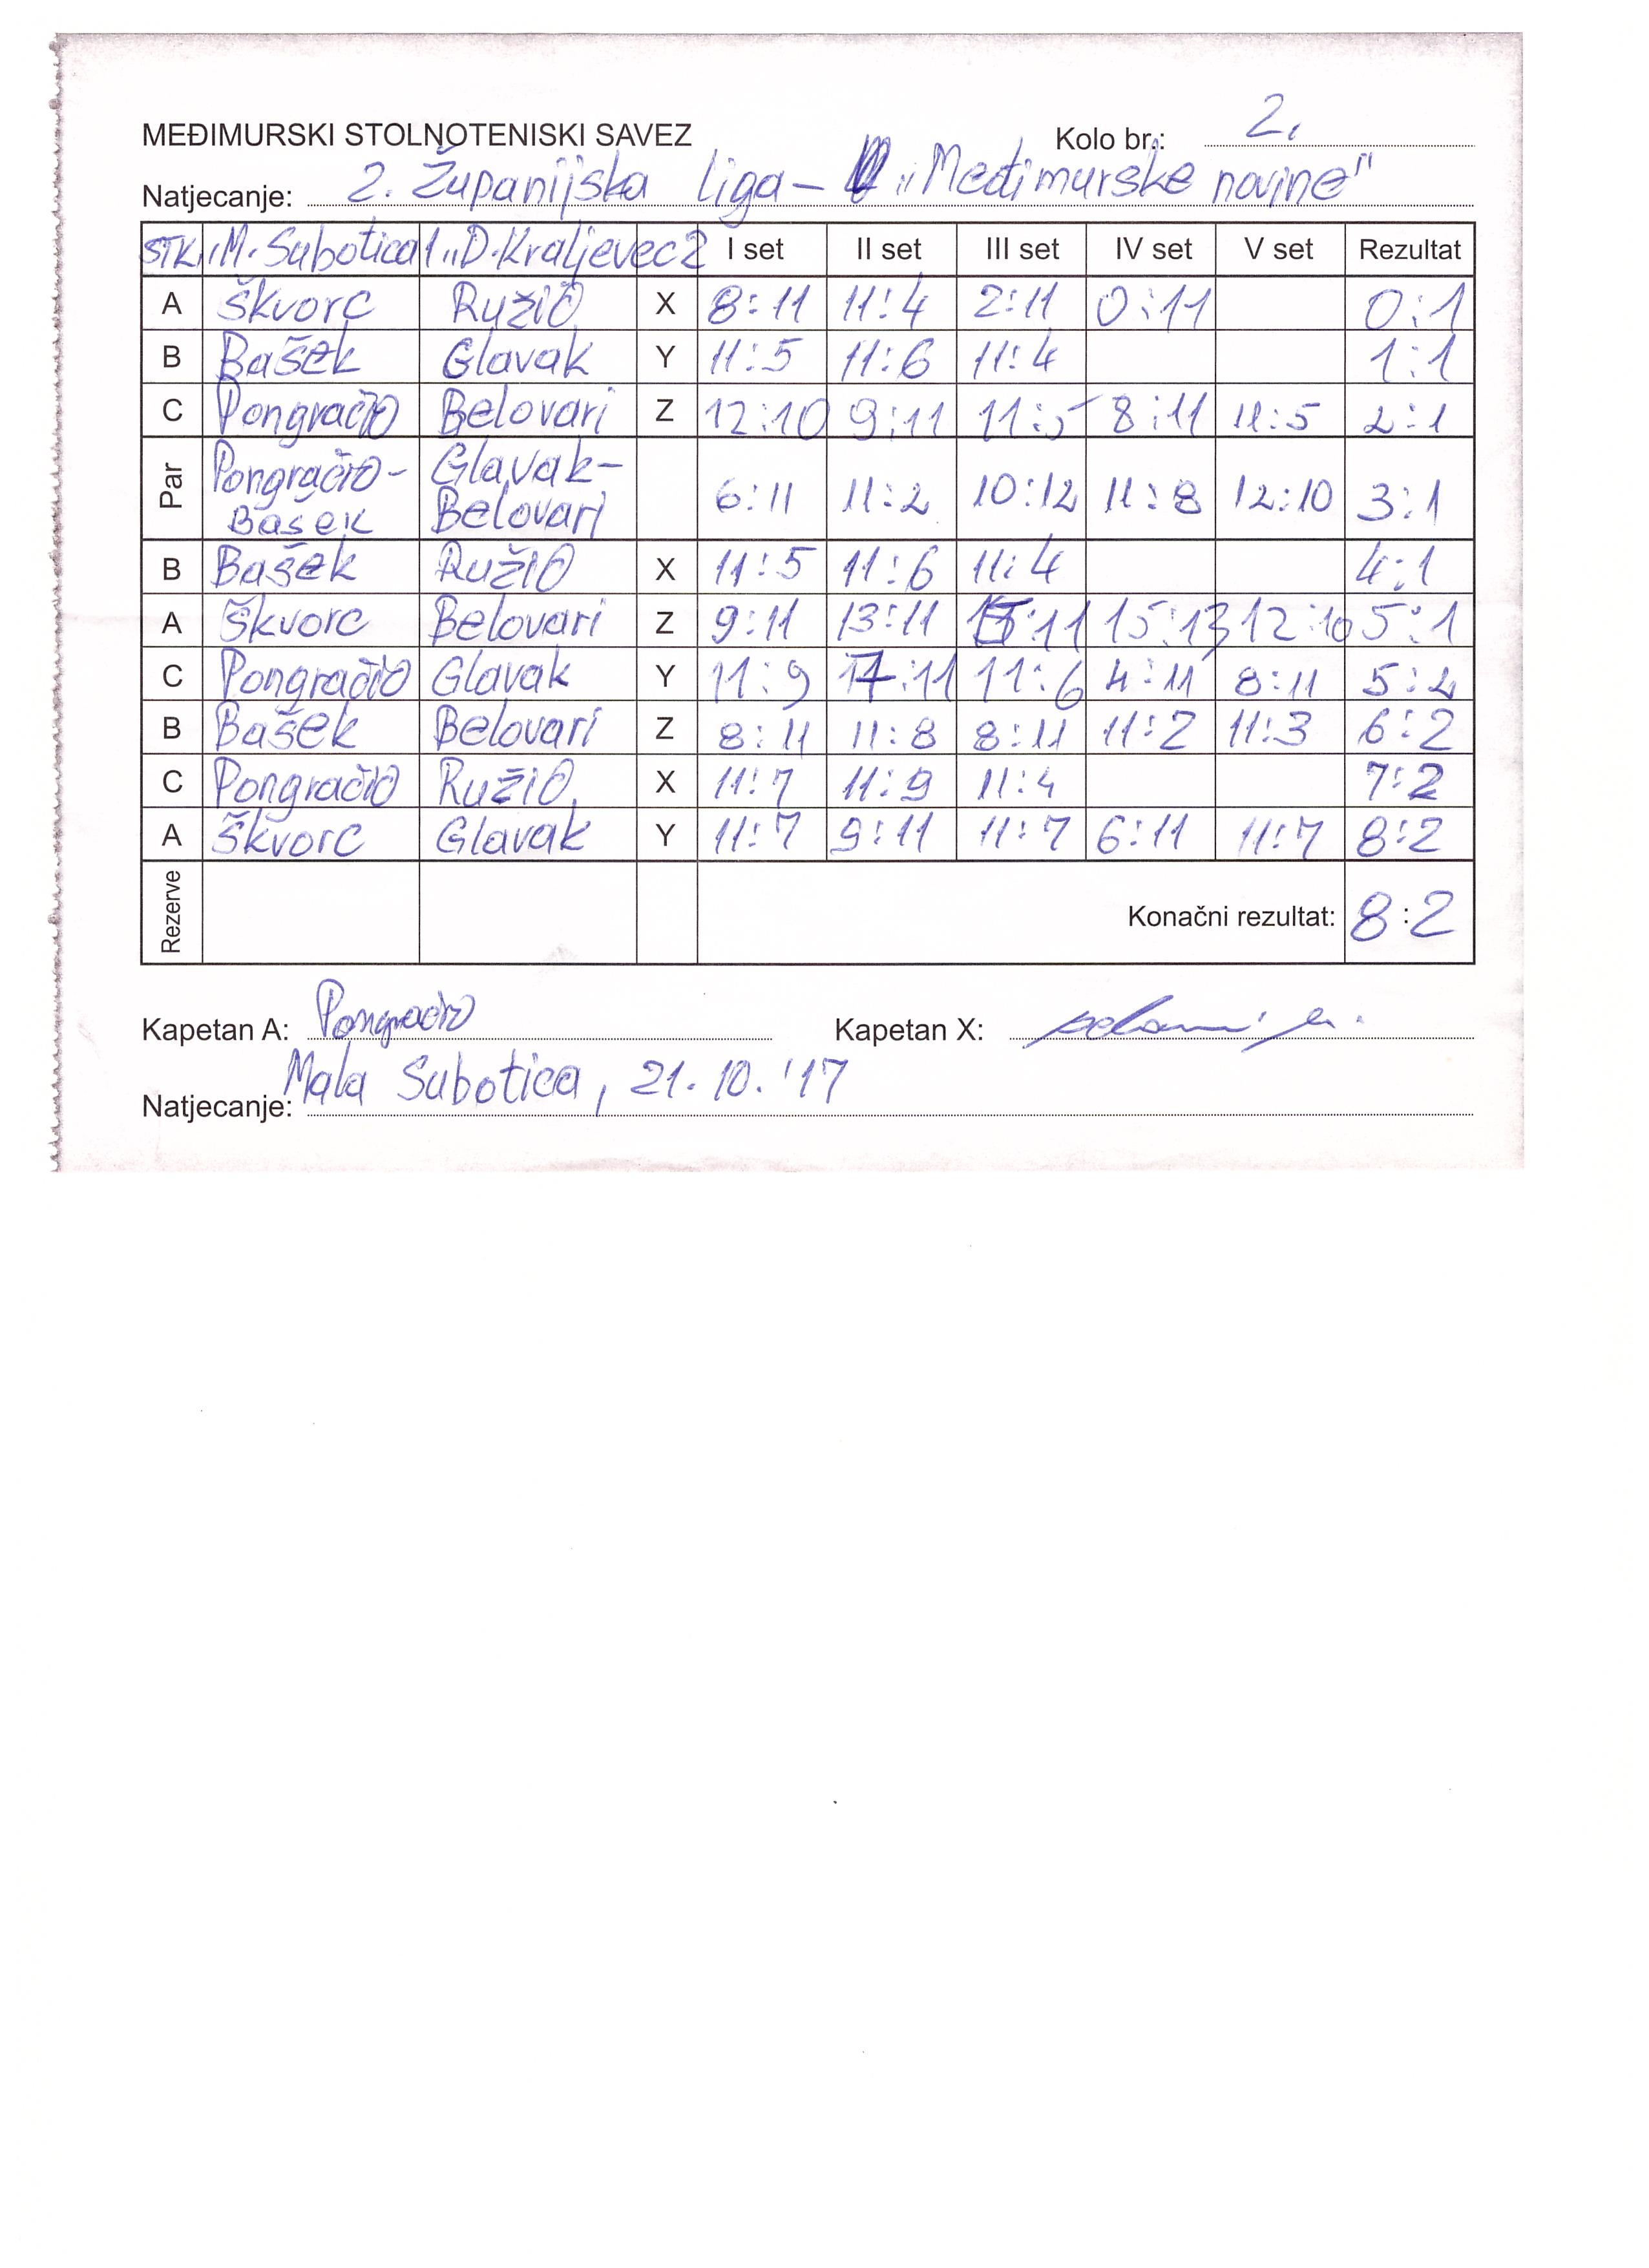 MEĐIMURSKI STOLNOTENISKI SAVEZ Kolo br.: 2.
Natjecanje: 2. Županijska liga - „Međimurske novine"
STK „M. Subotica 1 „D. Kraljevec 2 I set II set III set IV set V set Rezultat
A Škvorc Ružić X 8:11 11:4 2:11 0:11 0:1
B Bašek Glavak Y 11:5 11:6 11:4 1:1
C Pongračić Belovari Z 12:10 9:11 11:5 8:11 11:5 2:1
Par Pongračić- Glavak-
Bašek Belovari 6:11 11:2 10:12 11:8 12:10 3:1
B Bašek Ružić X 11:5 11:6 11:4 4:1
A Škvorc Belovari Z 9:11 13:11 :11 15:13 12:10 5:1
C Pongračić Glavak Y 11:9 :11 11:6 4:11 8:11 5:2
B Bašek Belovari Z 8:11 11:8 8:11 11:2 11:3 6:2
C Pongračić Ružić X 11:7 11:9 11:4 7:2
A Škvorc Glavak Y 11:7 9:11 11:7 6:11 11:7 8:2
Rezerve Konačni rezultat: 8:2
Kapetan A: Pongračić Kapetan X:
Natjecanje: Mala Subotica, 21.10.'17